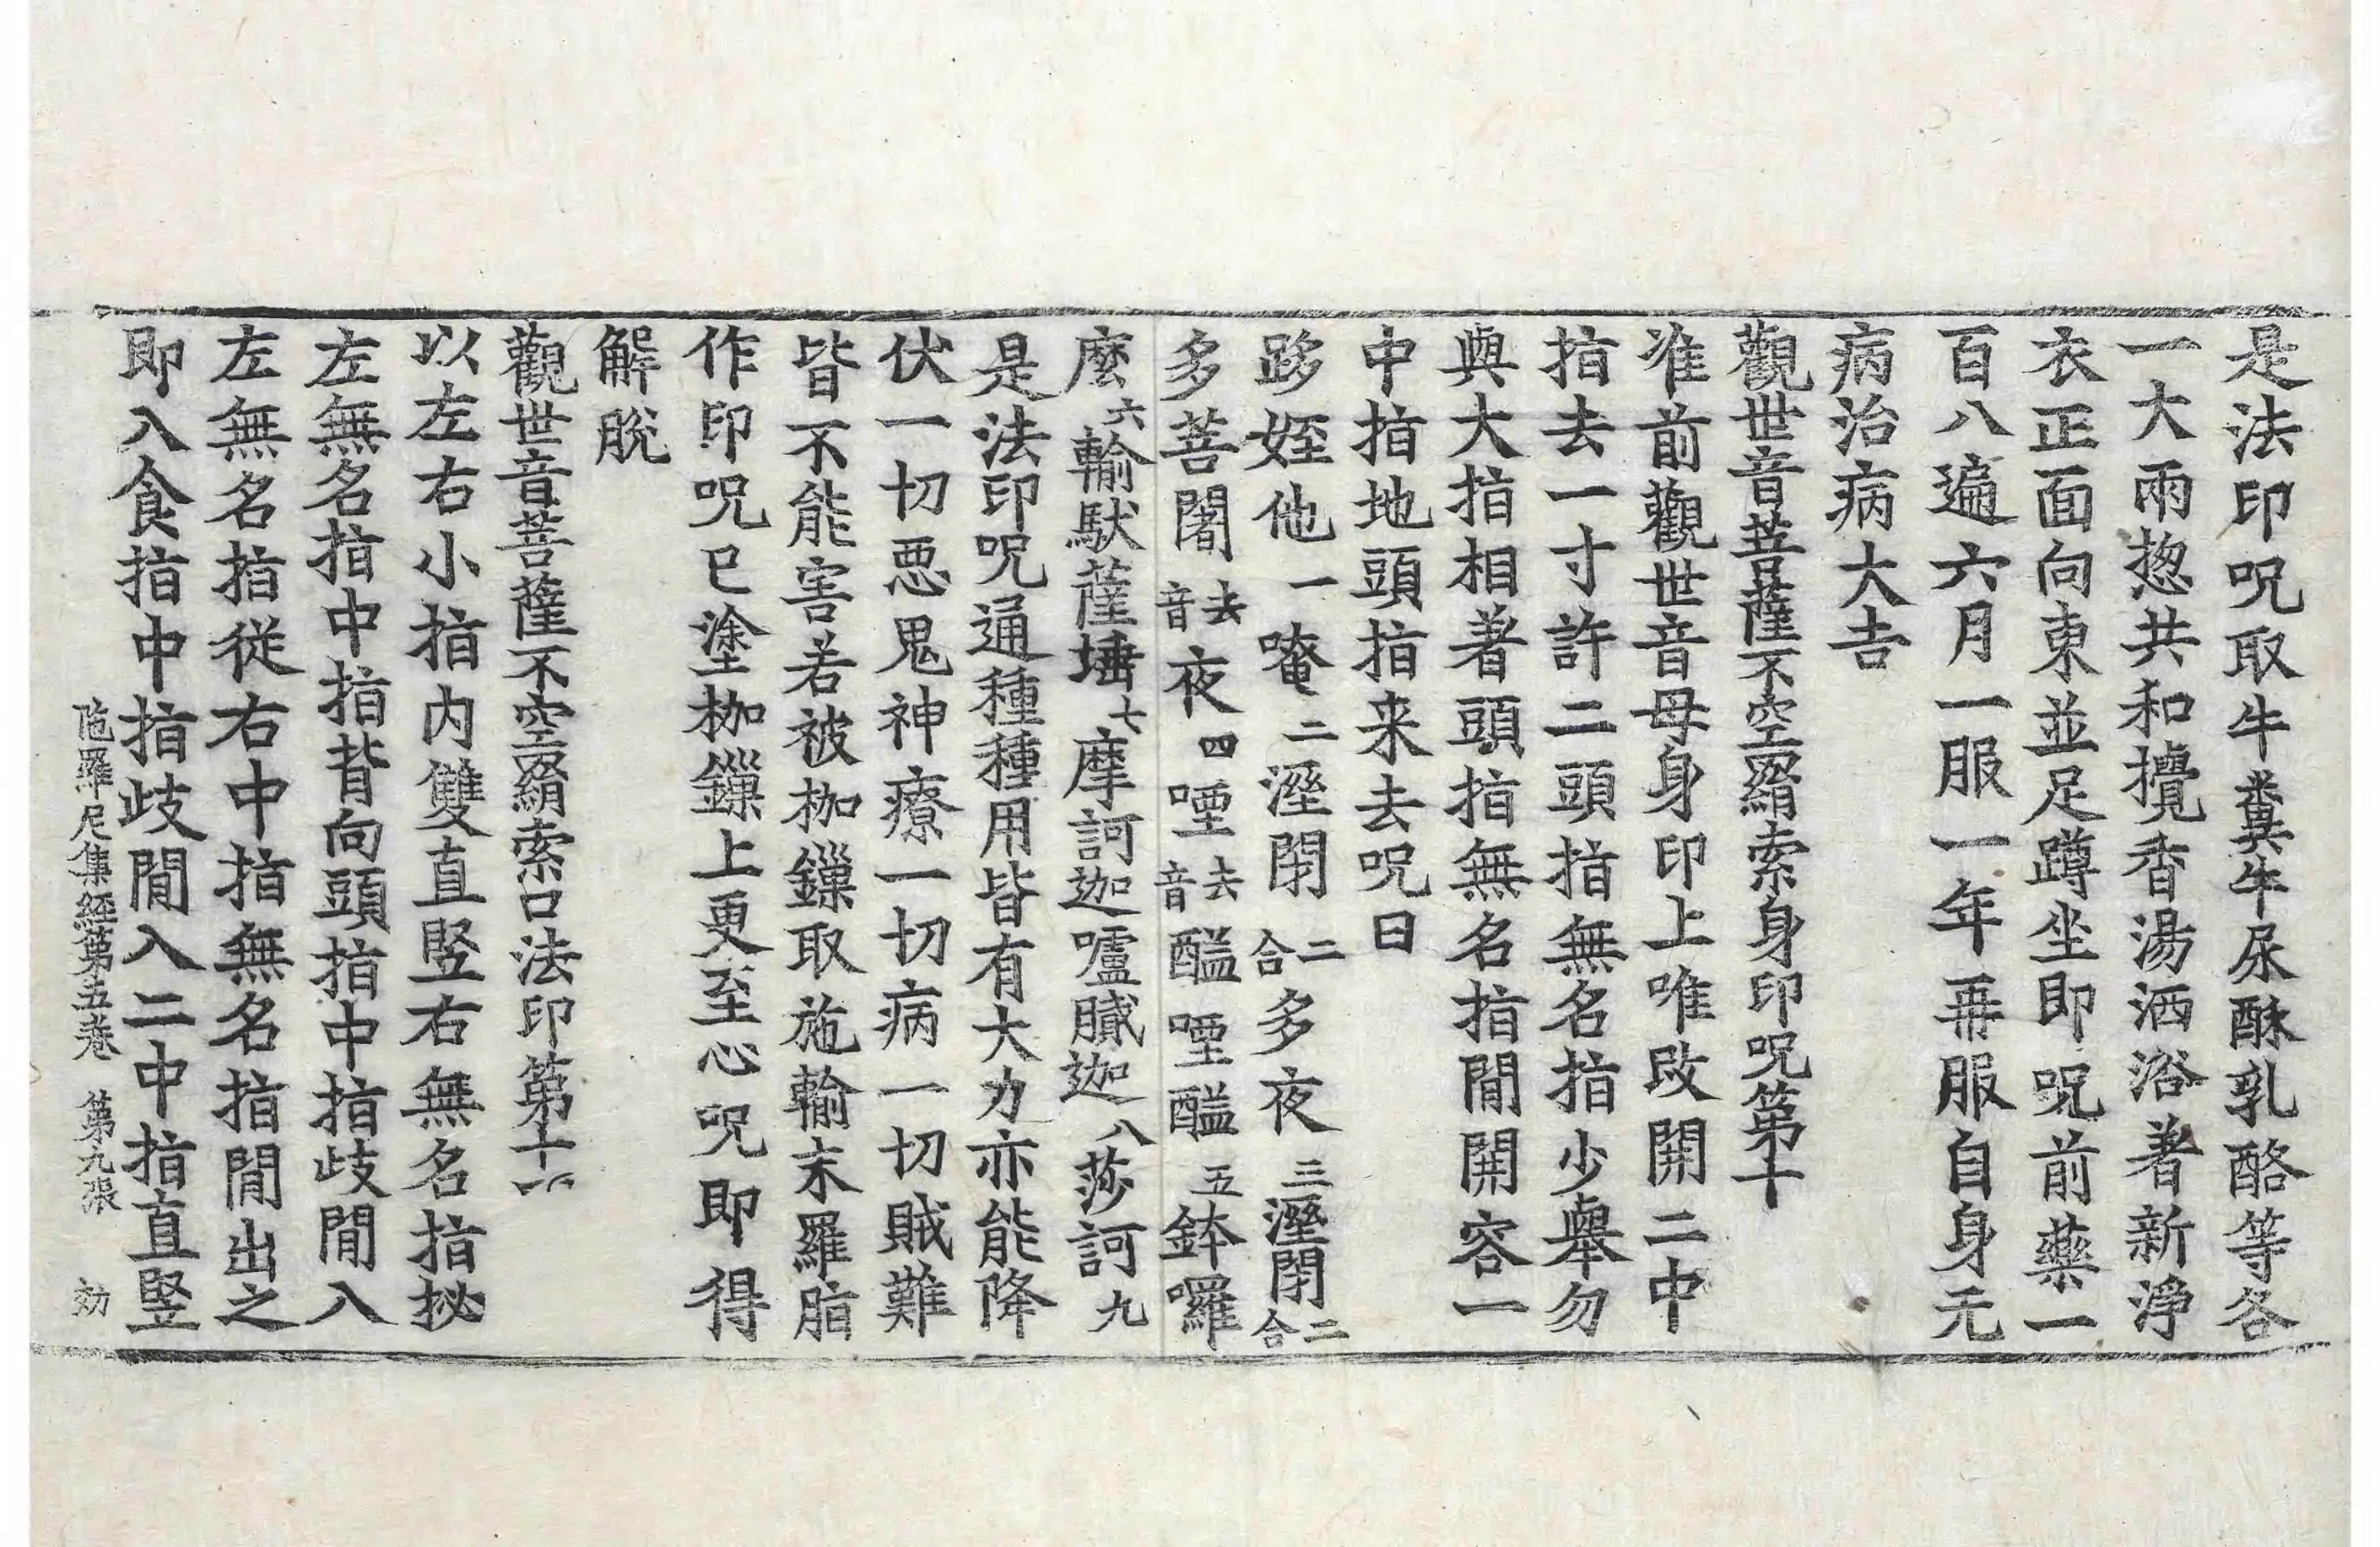 是法印呪取牛糞牛尿酥乳酪等各
一大兩揔共和攪香湯洒浴著新淨
衣正面向東並足蹲坐即呪前藥一
百八遍六月一服一年再服自身元
病治病大吉
觀世音菩薩不空羂索身印呪第十
准前觀世音母身印上唯改開二中
指去一寸許二頭指無名指少舉勿
與大指相著頭指無名指間開容一
中指地頭指来去呪曰
跢姪他一唵二溼閇二合多夜三溼閇二合
多菩闍去音夜四哩去音醯哩醯五鉢囉
麼六輸馱薩埵七摩訶迦嚧膩迦八莎訶九
是法印呪通種種用皆有大力亦能降
伏一切惡鬼神療一切病一切賊難
皆不能害若被枷鏁取施輸末羅脂
作印呪已塗枷鏁上更至心呪即得
解脫
觀世音菩薩不空羂索口法印第十一
以左右小指内雙直竪右無名指拟
左無名指中指背向頭指中指歧間入
左無名指從右中指無名指間出之
即入食指中指歧間入二中指直竪
陁羅尼集經第五卷 第九張 効